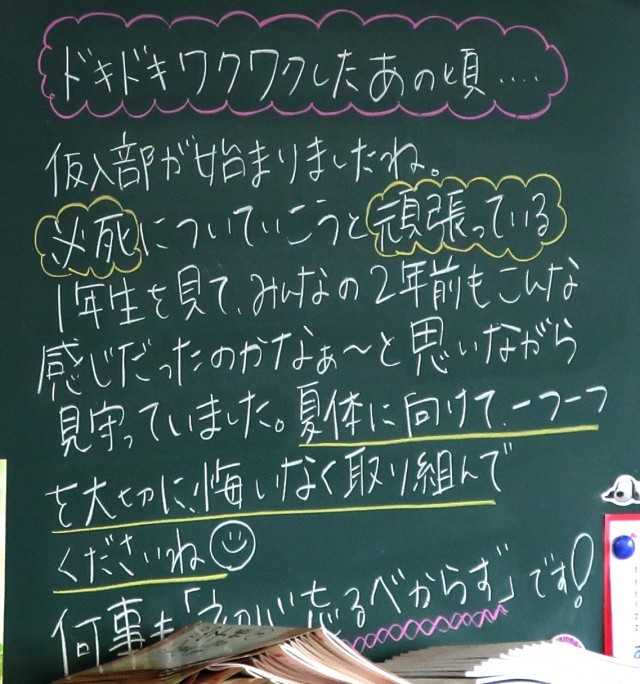 ドキドキワクワクしたあの頃‥‥
仮入部が始まりましたね。
必死についていこうと頑張っている
1年生を見て、みんなの2年前もこんな
感じだったのかなぁ〜と思いながら
見守っていました。夏体に向けて、一つ一つ
を大切に、悔いなく取り組んで
くださいね
何事も「忘るべからず」です!